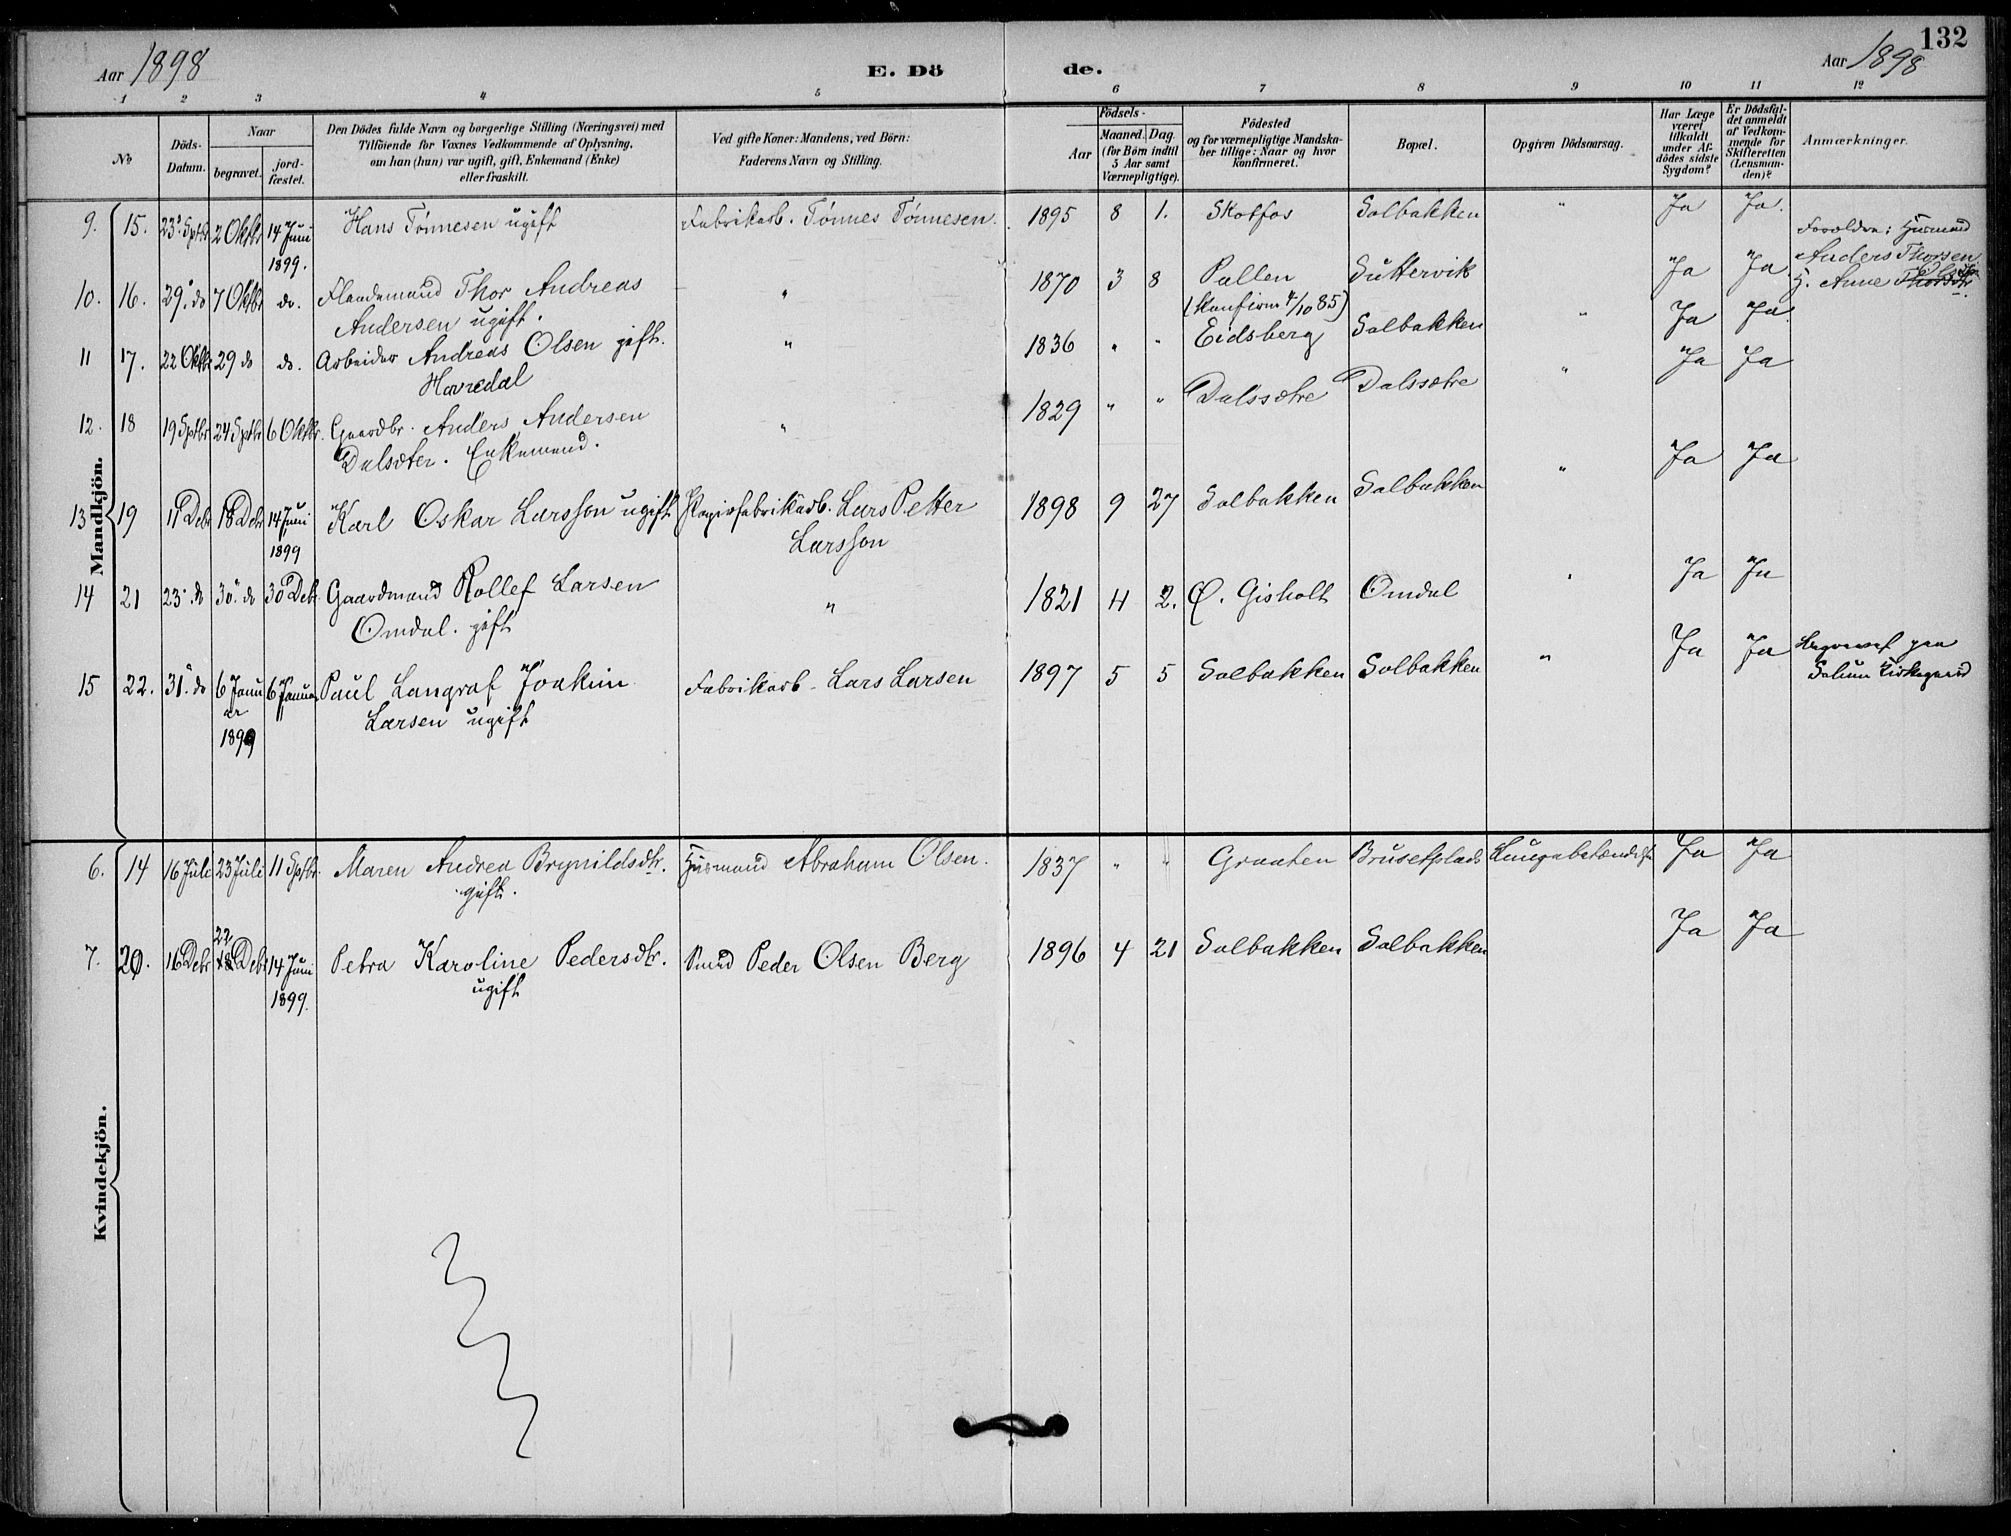 132
Aar 1898 E. Dö de. Aar 1898
1 2 3 4 5 6 7 8 9 10 11 12
No
Döds-
Datum.
Naar
begravet.
jord-
fæstet.
Den Dödes fulde Navn og borgerlige Stilling (Næringsvei) med
Tilföiende for Voxnes Vedkommende af Oplysning,
om han (hun) var ugift, gift, Enkemand (Enke)
eller fraskilt.
Ved gifte Koner: Mandens, ved Börn:
Faderens Navn og Stilling.
Födsels-
Aar
Maaned. Dag.
(for Börn indtil
5 Aar samt
Værnepligtige).
Födested
og for værnepligtige Mandska-
ber tillige: Naar og hvor
konfirmeret.
Bopæl.
Opgiven Dödsaarsag.
Har Læge
været
tilkaldt
under Af-
dödes sidste
Sygdom?
Er Dödsfal-
det anmeldt
af Vedkom-
mende for
Skifteretten
(Lensman-
den)?
Anmærkninger.
Mandkjön.
9. 15. 23. Sptbr 2 Oktbr 14 Juni Hans Tönnesen ugift Fabrikarb. Tönnes Tönnesen. 1895 8 1. Skotfos Solbakken " Ja Ja.
1899.
Forældre: Husmand
Anders Thorsen
10. 16. 29. do 7 Oktbr do. Thor Andreas " 1870 3 8 Pollen Suttervik Ja Ja H. Anne Thorsdtr.
Andersen ugift. (Konfirm 4/10 85)
11 17. 22 Oktbr 29 do do. Arbeider Andreas Olsen gift. " 1836 " " Eidsberg Solbakken " Ja Ja.
Havredal
12. 18 19 Sptbr 24 Sptbr 6 Oktbr. Gaardbr. Anders Andersen " 1829 " " Dalssætre Dalssætre " Ja Ja
Dalsæter. Enkemand.
13 19 11 Debr 18 Debr 14 Juni Karl Oskar Larsson ugift Papirfabrikarb. Lars Petter 1898 9 27 Solbakken Solbakken " Ja Ja
1899 Larsson
14 21 23. do 30. do 30 Debr. Gaardmand Rollef Larsen " 1821 4 2. Ø. Gisholt Omdal " Ja Ja
Omdal. gift
15 22. 31. do 6 Janu 6 Januar Paul Langraf Joakim Fabrikarb. Lars Larsen 1897 5 5 Solbakken Solbakken " Ja Ja Begravet paa
ar Larsen ugift Solum Kirkegaard
1899
Kvindekjön.
6. 14 16 Juli 23 Juli 11 Sptbr. Maren Andrea Brynildsdtr. Husmand Abraham Olsen. 1837 " " Graaten Brusetplads Lungebetændelse Ja Ja
gift.
22
7. 20. 16 Debr 18 Debr 14 Juni Petra Karoline Pedersdtr. Smed Peder Olsen Berg 1896 4 21 Solbakken Solbakken Ja Ja
1899. ugift